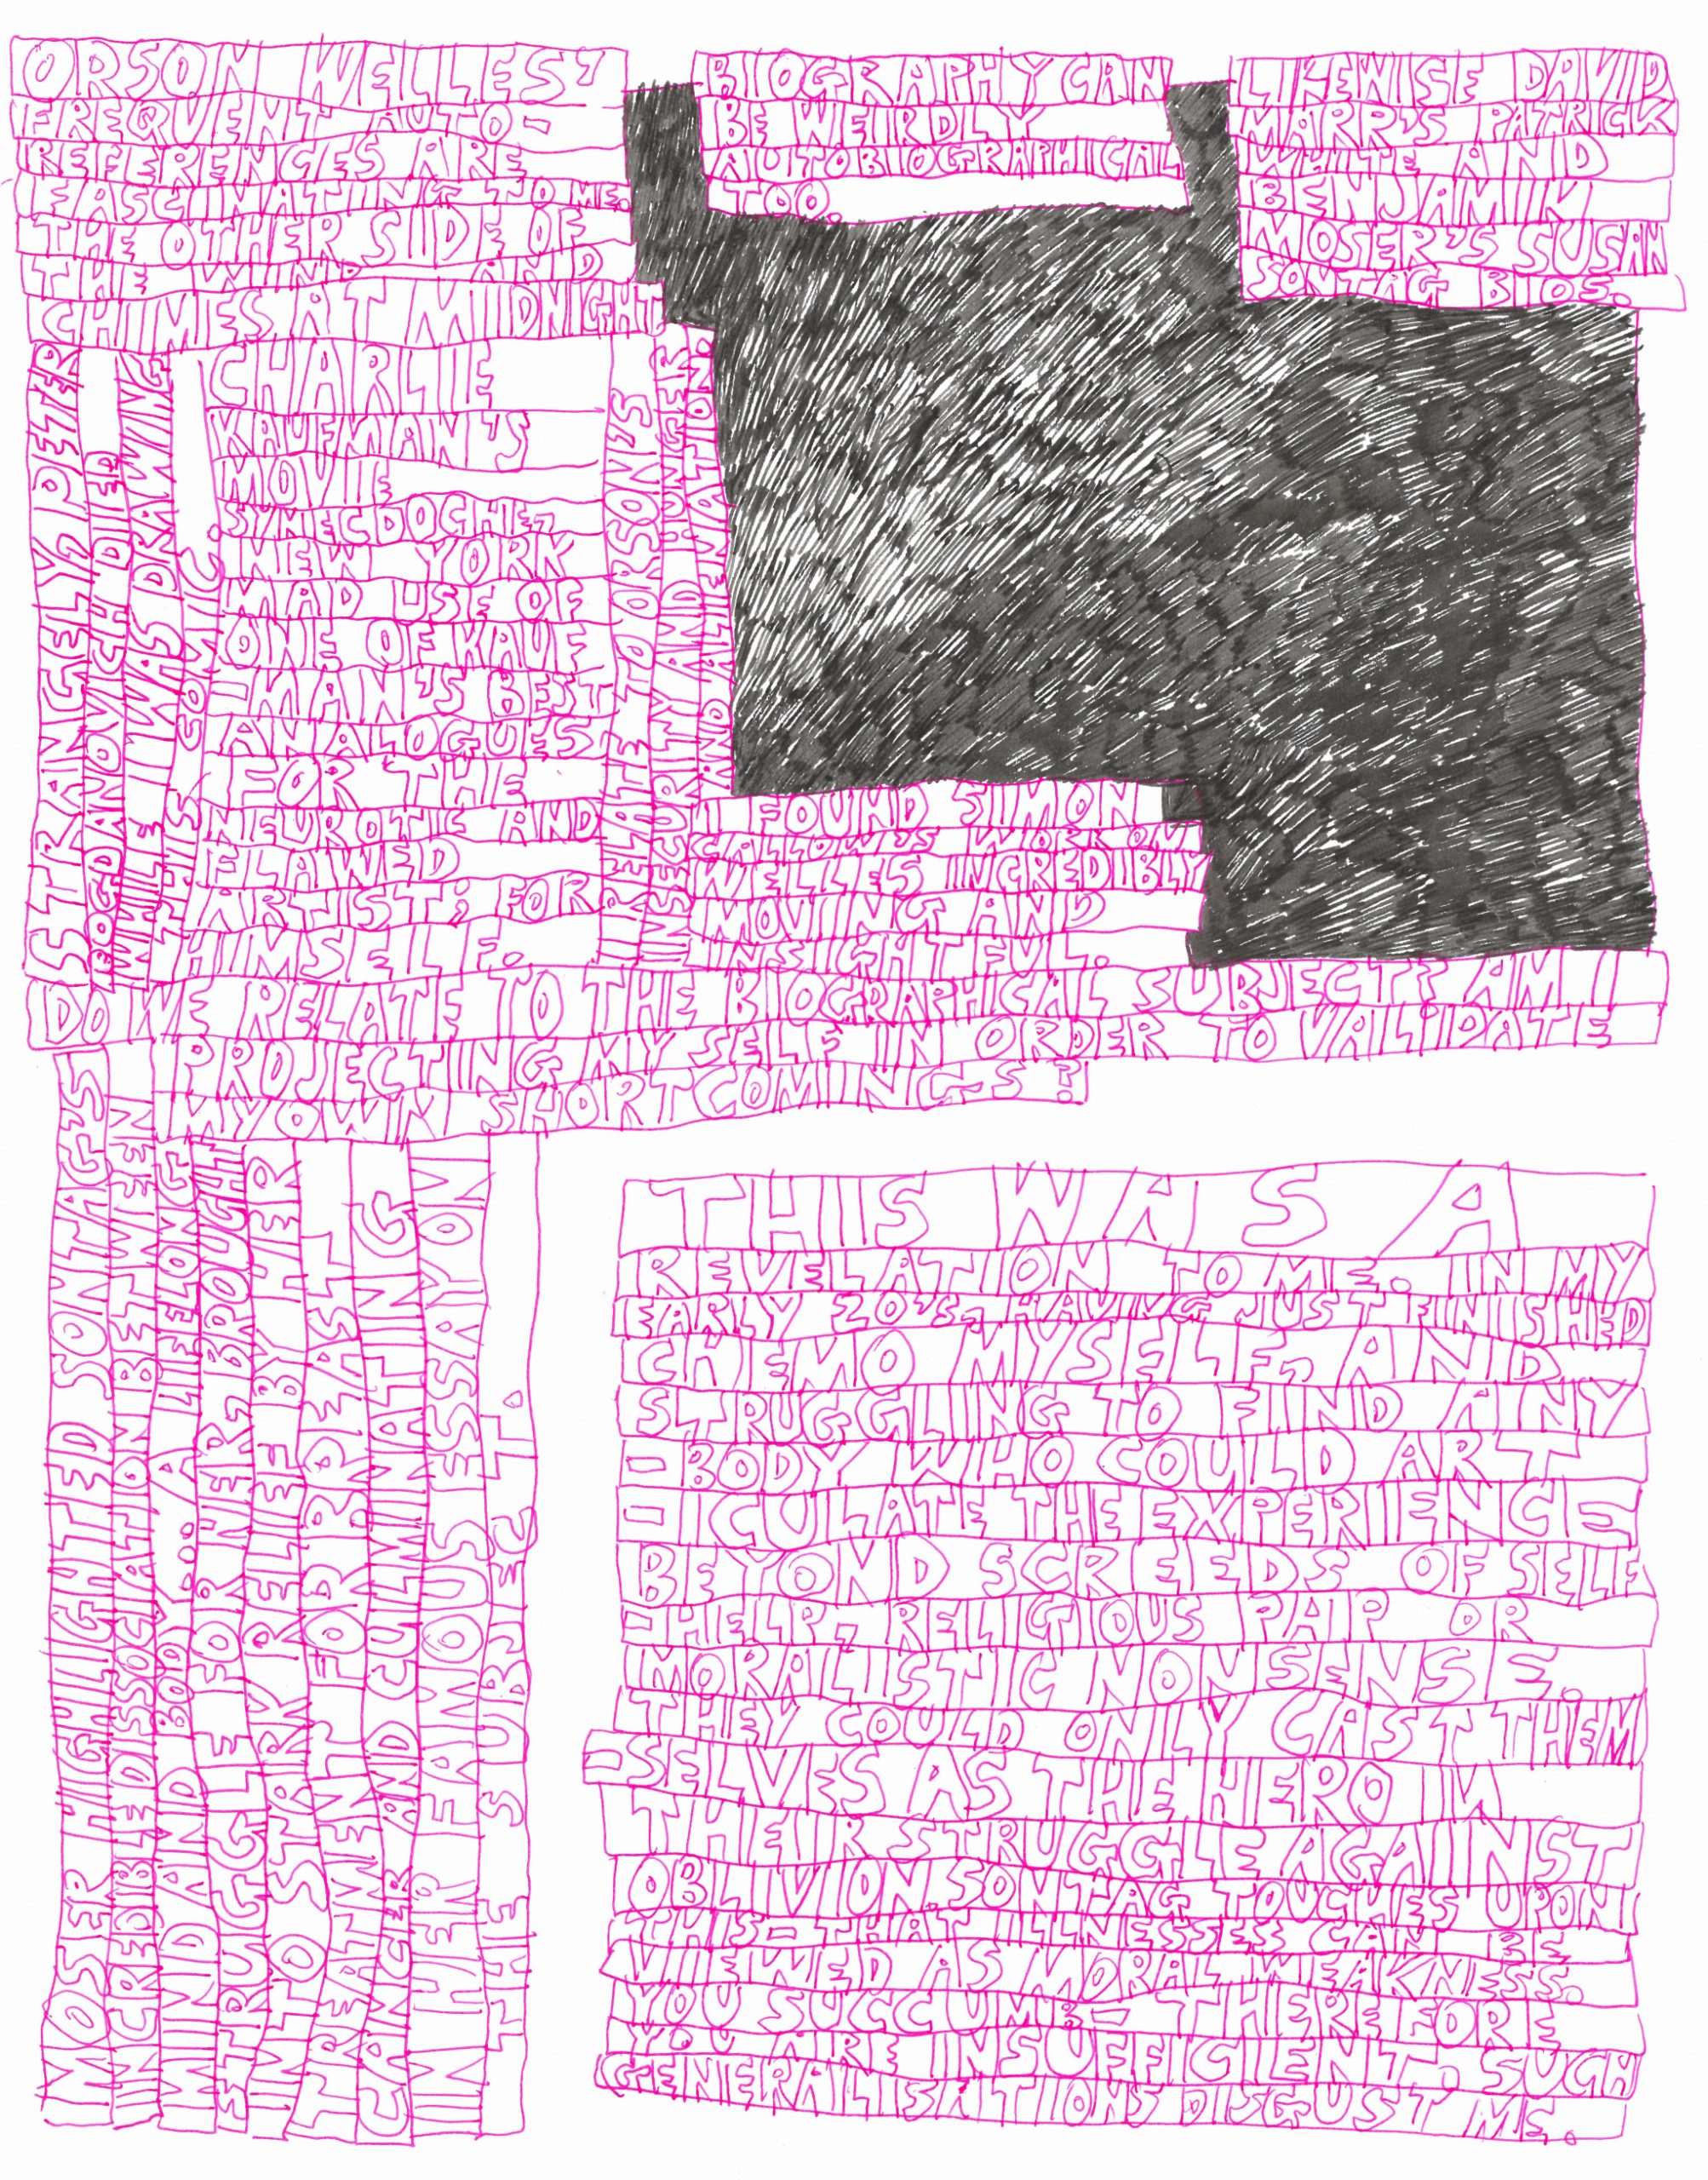 ORSON WELLES'
FREQUENT AUTO-
REFERENCES ARE
FASCINATING TO ME.
THE OTHER SIDE OF
THE WIND AND
CHIMES AT MIDNIGHT
BIOGRAPHY CAN
BE WEIRDLY
AUTOBIOGRAPHICAL
TOO.
LIKEWISE DAVID
MARR'S PATRICK
WHITE AND
BENJAMIN
MOSER'S SUSAN
SONTAG BIOS.
STRANGELY, PETER
BOGDANOVICH DIED
WHILE I WAS DRAWING
THIS COMIC.
CHARLIE
KAUFMAN'S
MOVIE
SYNECDOCHE,
NEW YORK
MAD USE OF
ONE OF KAUF
-MAN'S BEST
ANALOGUES
FOR THE
NEUROTIC AND
FLAWED
ARTIST; FOR
HIMSELF.
I RELATE TO ORSON'S
INSECURITY AND HUNGER
AND ALIENATION.
I FOUND SIMON
CALLOW'S WORK ON
WELLES INCREDIBLY
MOVING AND
INSIGHTFUL.
DO WE RELATE TO THE BIOGRAPHICAL SUBJECT? AM I
PROJECTING MYSELF IN ORDER TO VALIDATE
MY OWN SHORTCOMINGS?
MOSER HIGHLIGHTED SONTAG'S
INCREDIBLE DISSOCIATION BETWEEN
MIND AND BODY... A LIFELONG
STRUGGLE FOR HER, BROUGHT
INTO STARK RELIEF BY HER
TREATMENT FOR BREAST
CANCER AND CULMINATING
IN HER FAMOUS ESSAY ON
THE SUBJECT.
THIS WAS A
REVELATION TO ME. IN MY
EARLY 20'S, HAVING JUST FINISHED
CHEMO MYSELF, AND
STRUGGLING TO FIND ANY
-BODY WHO COULD ART
-ICULATE THE EXPERIENCE
BEYOND SCREEDS OF SELF
-HELP, RELIGIOUS PAP OR
MORALISTIC NONSENSE.
THEY COULD ONLY CAST THEM
-SELVES AS THE HERO IN
THEIR STRUGGLE AGAINST
OBLIVION. SONTAG TOUCHES UPON
THIS - THAT ILLNESSES CAN BE
VIEWED AS MORAL WEAKNESS.
YOU SUCCUMB - THEREFORE
YOU ARE INSUFFICIENT. SUCH
GENERALISATIONS DISGUST ME.